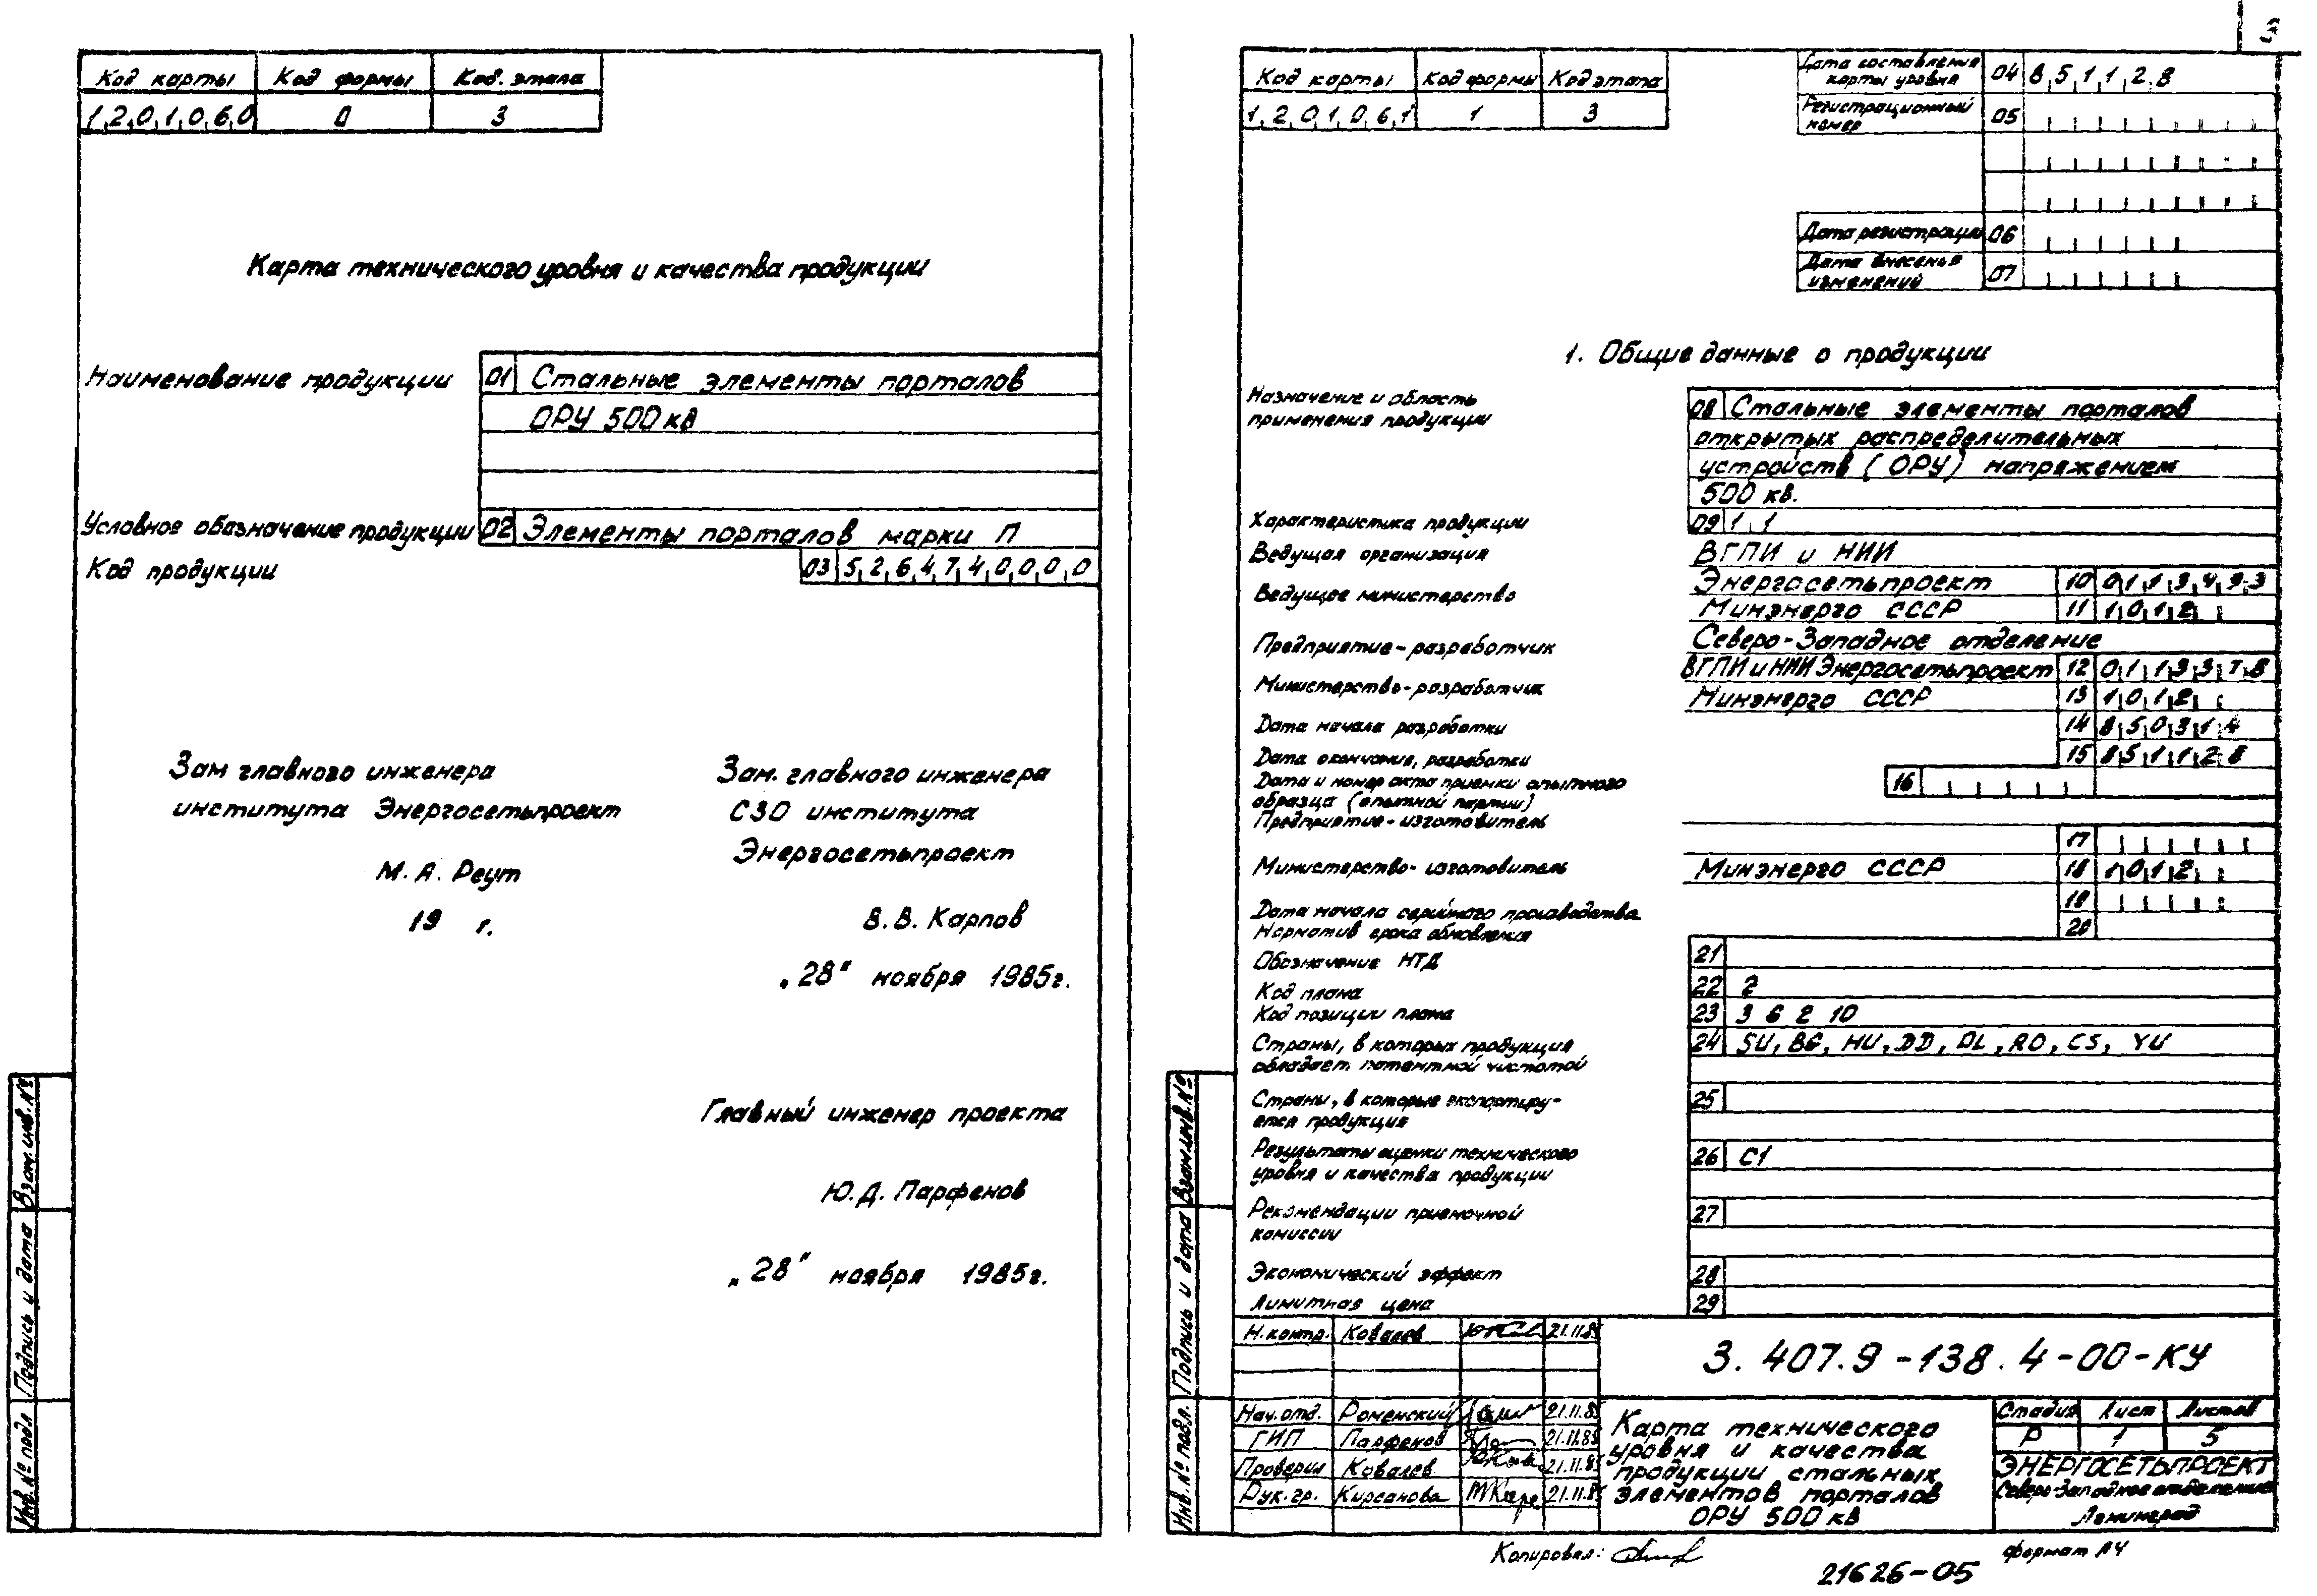 Код карты Код формы Код. этапа
1,2,0,1,0,6,0 0 3
Карта технического уровня и качества продукции
Наименование продукции 01 Стальные элементы порталов
ОРУ 500 кВ
Условное обозначение продукции 02 Элементы порталов марки П
Код продукции 03 5,2,6,4,7,4,0,0,0,0
Зам главного инженера
института Энергосетьпроект
М. А. Реут
19 г.
Зам. главного инженера
СЗО института
Энергосетьпроект
В. В. Карпов
„28" ноября 1985г.
Главный инженер проекта
Ю. Д. Парфенов
„28" ноября 1985г.
Инв. № подл Подпись и дата Взам. инв. №
3
Код карты Код формы Код этапа
1,2,0,1,0,6,1 1 3
Дата составления
карты уровня 04 8,5,1,1,2,8
Регистрационный
номер 05
Дата регистрации 06
Дата внесенья
изменений 07
1. Общие данные о продукции
Назначение и область
применения продукции
08 Стальные элементы порталов
открытых распределительных
устройств (ОРУ) напряжением
500 кв.
Характеристика продукции 09 1,1
Ведущая организация ВГПИ и НИИ
Энергосетьпроект 10 0,1,1,3,4,9,3
Ведущее министерство Минэнерго СССР 11 1,0,1,2
Предприятие-разработчик Северо-Западное отделение
ВГПИ и НИИ Энергосетьпроект 12 0,1,1,3,3,7,8
Министерство-разработчик Минэнерго СССР 13 1,0,1,2
Дата начала разработки 14 8,5,0,3,1,4
Дата окончания, разработки 15 8,5,1,1,2,8
Дата и номер акта приемки опытного
образца (опытной партии) 16
Предприятие-изготовитель
17
Министерство-изготовитель Минэнерго СССР 18 1,0,1,2
Дата начала серийного производства 19
Норматив срока обновления 20
Обозначение НТД 21
Код плана 22 2
Код позиции плана 23 3 6 2 10
Страны, в которых продукция
обладает патентной чистотой
24 SU, BG, HU, DD, PL, RO, CS, YU
Страны, в которые экспортиру-
ется продукция
25
Результаты оценки технического
уровня и качества продукции
26 С1
Рекомендации приемочной
комиссии
27
Экономический эффект 28
Лимитная цена 29
Н. контр. Ковалев 21.11.85
3. 407. 9 - 138. 4 - 00 - КУ
Нач. отд. Роменский 21.11.85
ГИП Парфенов 21.11.85
Проверил Ковалев 21.11.85
Рук. гр. Кирсанова 21.11.85
Карта технического
уровня и качества
продукции стальных
элементов порталов
ОРУ 500 кВ
Стадия Лист Листов
Р 1 5
ЭНЕРГОСЕТЬПРОЕКТ
Северо-Западное отделение
Ленинград
Инв. № подл. Подпись и дата Взам. инв. №
Копировал:
формат А4
21626-05